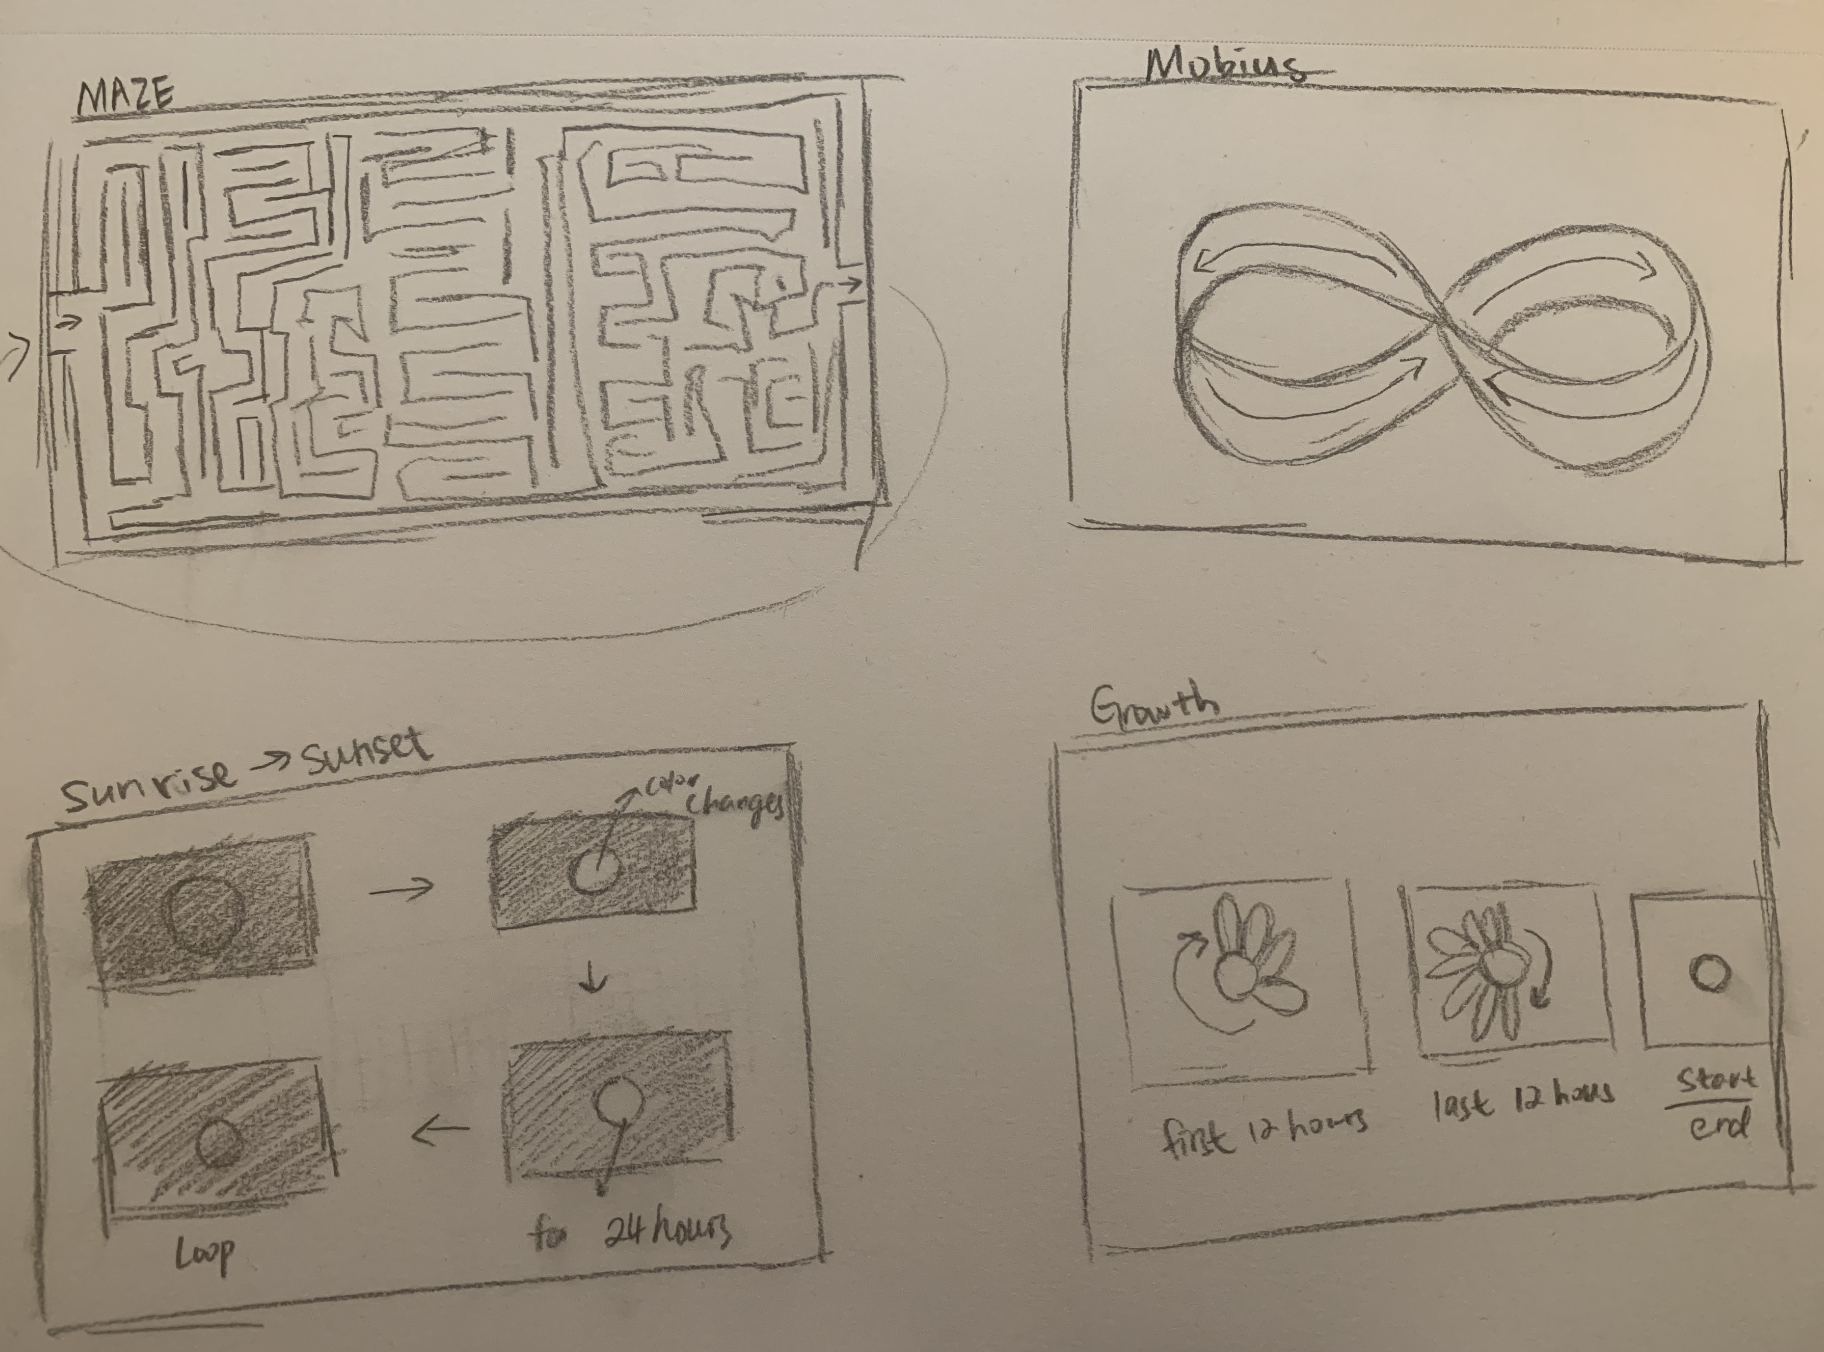 MAZE
Mobius
Sunrise → sunset
color
changes
Loop
for 24 hours
Growth
first 12 hours
last 12 hours
start
end